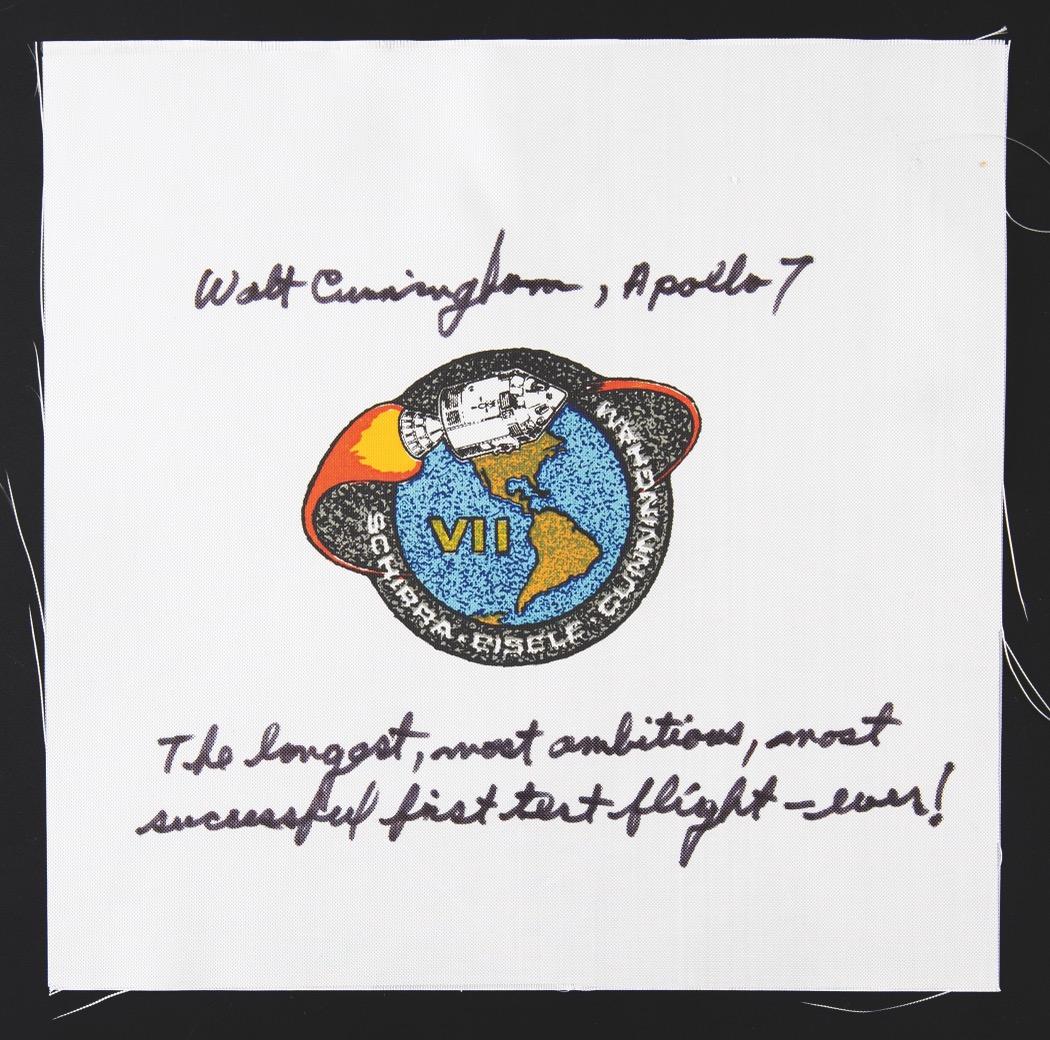 Walt Cunningham, Apollo 7
VII
SCHIRRA · EISELE · CUNNINGHAM
The longest, most ambitious, most
successful first test flight – ever!